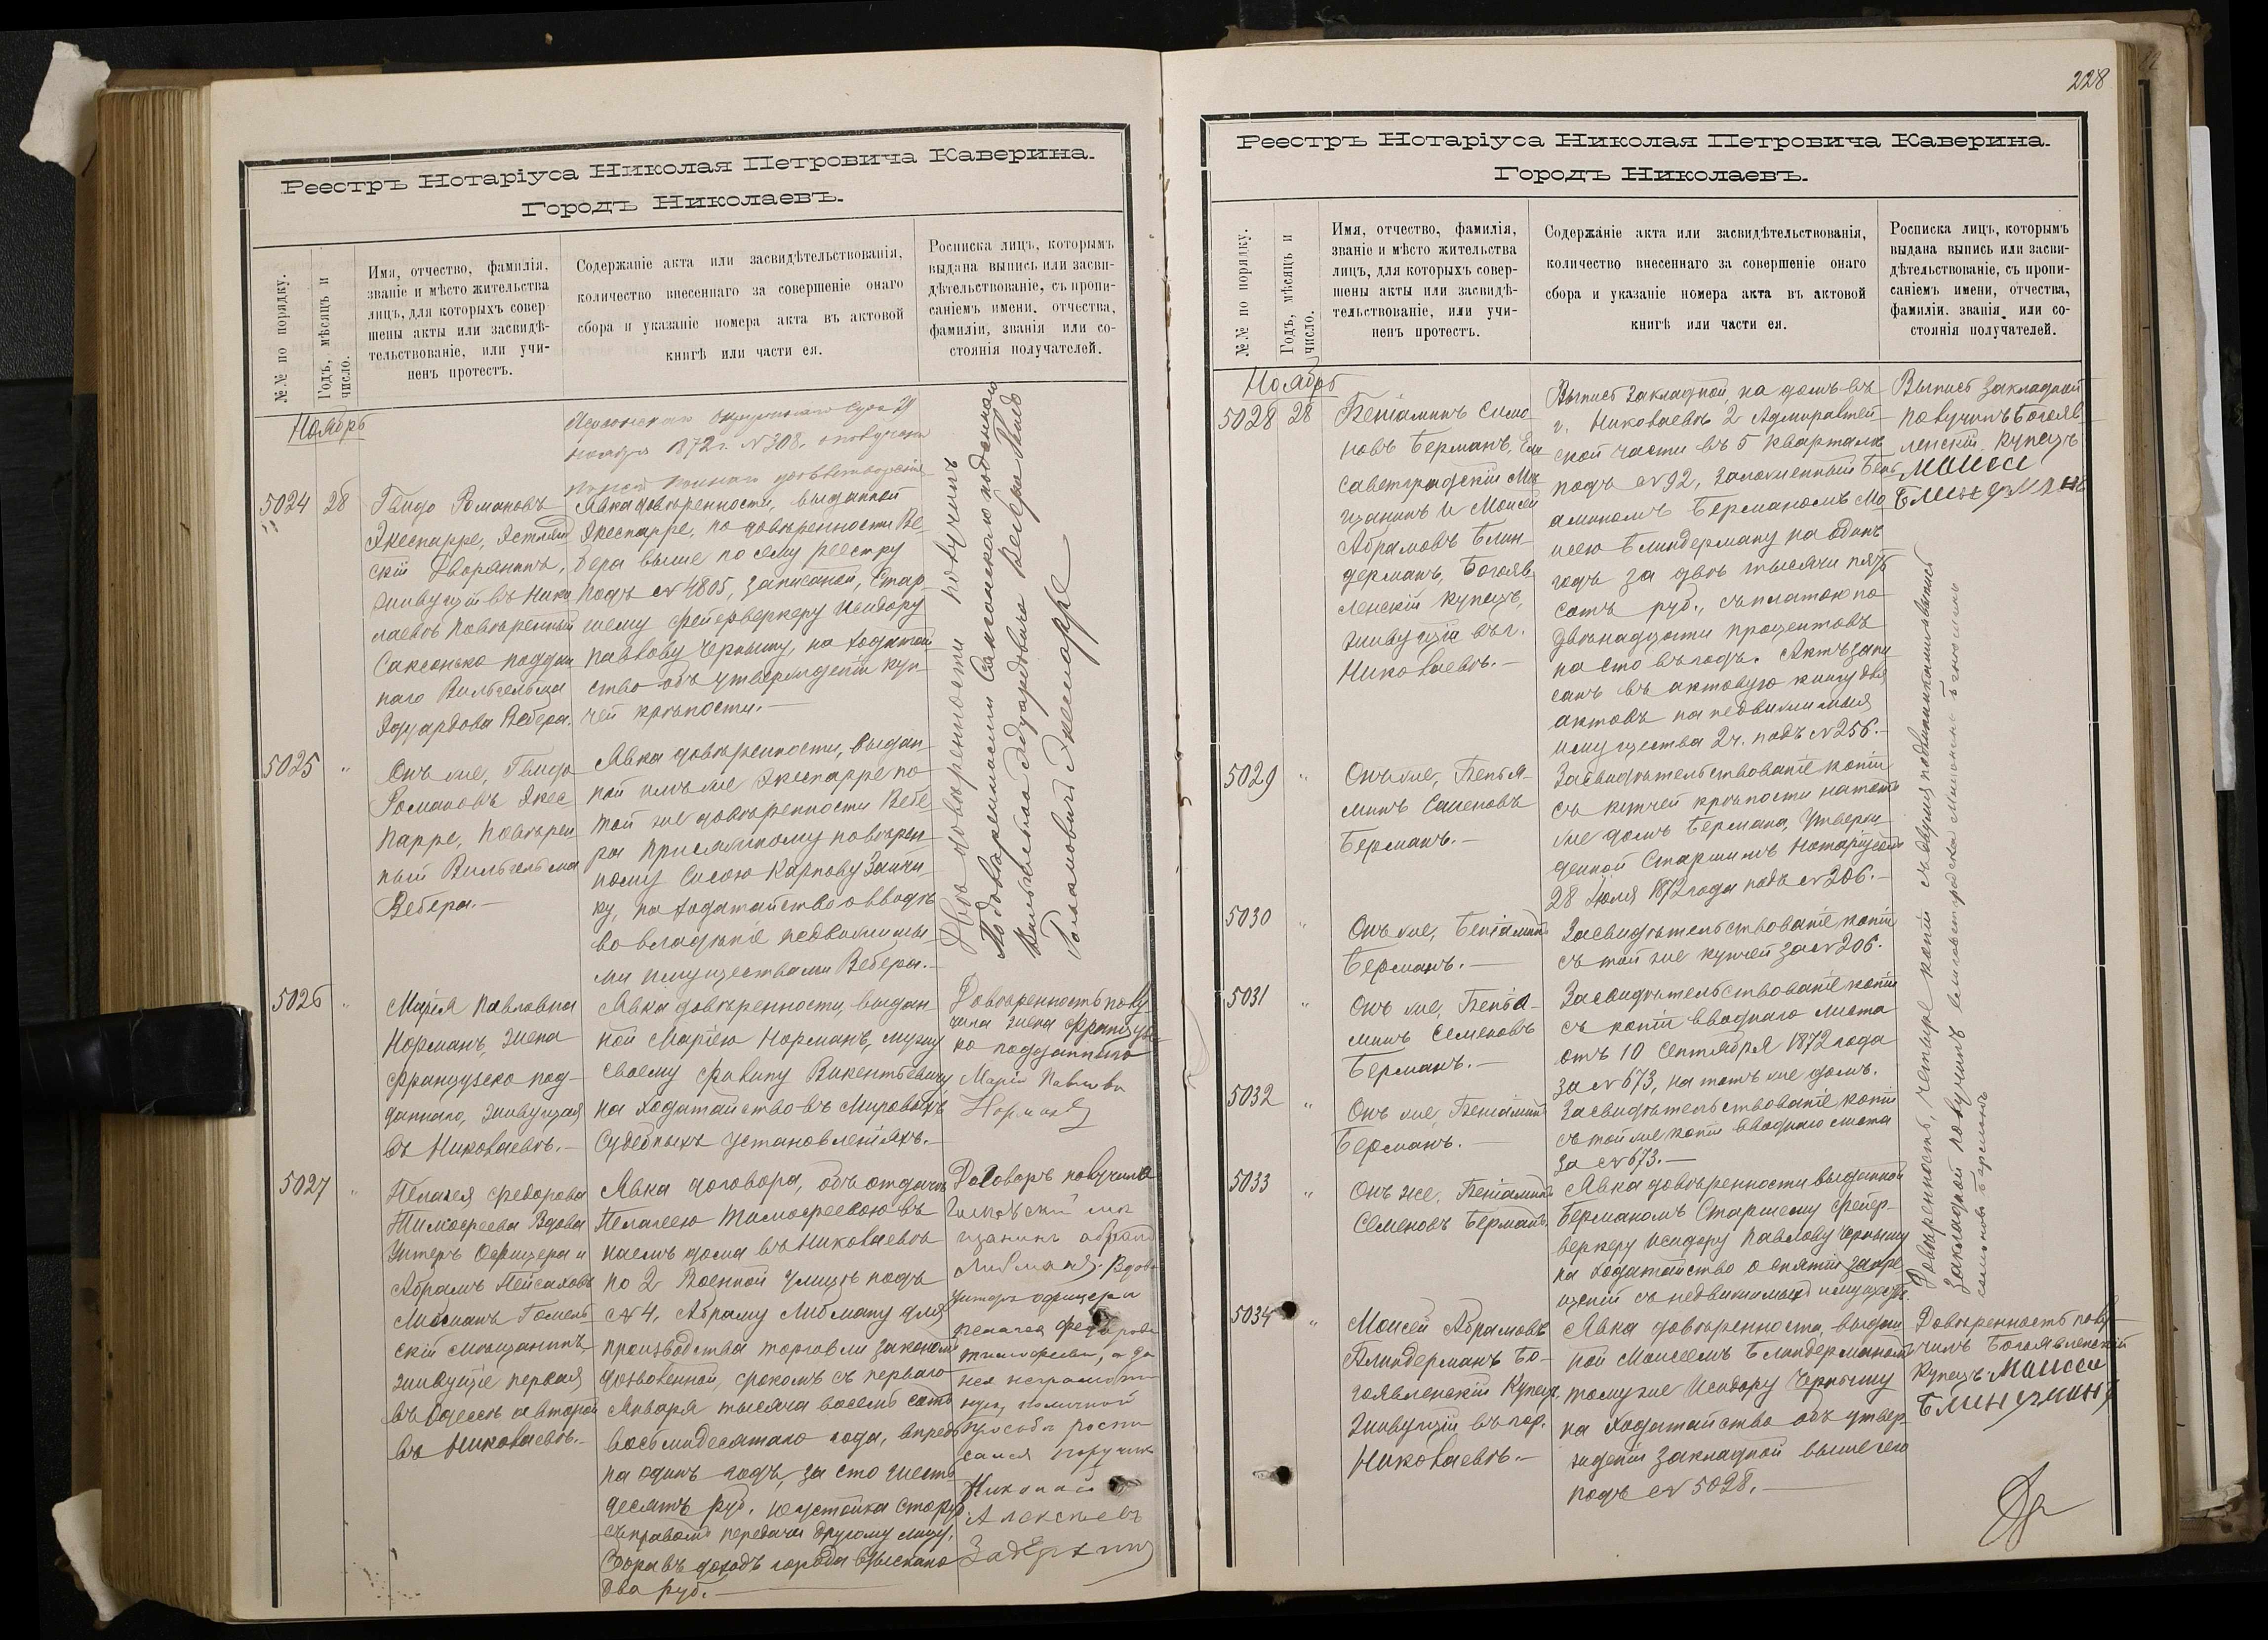 Реестръ Нотаріуса Николая Петровича Каверина.
Городъ Николаевъ.
№№ по порядку.
Годъ, мѣсяцъ и
число.
Имя, отчество, фамилія,
званіе и мѣсто жительства
лицъ, для которыхъ совер-
шены акты или засвидѣ-
тельствованіе, или учи-
ненъ протестъ.
Содержаніе акта или засвидѣтельствованія,
количество внесеннаго за совершеніе онаго
сбора и указаніе номера акта въ актовой
книгѣ или части ея.
Росписка лицъ, которымъ
выдана выпись или засви-
дѣтельствованіе, съ пропи-
саніемъ имени, отчества,
фамиліи, званія или со-
стоянія получателей.
Ноябрь
Херсонскаго Окружнаго Суда 21
ноября 1872 г. №308, о получении
5024
28
Гвидо Романовъ
Экеспарре, Эстлянд
скій Дворянинъ,
живущій въ Нико
лаевѣ повѣренный
Саксонско поддан
наго Вильгельма
Эдуардова Вебера.
Явка довѣренности, выданной
Экеспарре, по довѣренности Ве-
бера выше по сему реестру
подъ №4805, записаной, Стар-
шему фейерверкеру Исидору
Павлову Черныму, на ходатай
ство объ утвержденіи куп-
чей крѣпости.-
5025
"
Онъ же, Гвидо
Романовъ Экес
парре, повѣрен
ный Вильгельма
Вебера.-
Явка довѣренности, выдан-
ной имъ же Экеспарре по
той же довѣренности Вебе
ра присяжному повѣрен-
ному Сисою Карпову Заичи-
ку, на ходатайство о вводѣ
во владѣніе недвижимы-
ми имуществами Вебера.-
Двѣ довѣренности получилъ
По довѣренности Саксонскаго подданаго
Вильгельма Эдуардовича Вебера Гвидо
Романовичъ Экеспарре
5026
"
Марія Павловна
Норманъ, жена
французско под-
даннаго, живущая
въ Николаевѣ.-
Явка довѣренности, выдан
ной Маріею Норманъ, мужу
своему Филипу Викентьевичу
на ходатайство въ Мировыхъ
Судебныхъ установленіяхъ.-
Довѣренность полу
чила жена французс
ко подданнаго
Марія Павлова
Норманъ
5027
"
Пелагея Федорова
Тимофеева Вдова
Унтеръ Офицера и
Абрамъ Пейсаховъ
Либманъ Гомель
скій мѣщанинъ,
живущіе первая
въ Одессѣ а второй
въ Николаевѣ.-
Явка договора, объ отдачѣ
Пелагеею Тимофеевою въ
наемъ дома въ Николаевѣ
по 2 Военной улицѣ подъ
№4, Абраму Либману для
производства торговли закономъ
дозволенной, срокомъ съ перваго
Января тысяча восемь сотъ
восьмидесятаго года, впредь
на одинъ годъ, за сто шесть
десятъ руб. неустойка сто руб.
съ правомъ передачи другому лицу.
Сбора въ доходъ города взыскано
два руб.-
Договоръ получила
Гомельскій мѣ
щанинъ Абрамъ
Либманъ. Вдова
унтеръ офицера
Пелагея Федорова
Тимофеева, а за
нея неграмотн
ую, по личной
просьбѣ роспи
сался поручик
Николай
Алексѣевъ
228
Реестръ Нотаріуса Николая Петровича Каверина.
Городъ Николаевъ.
№№ по порядку.
Годъ, мѣсяцъ и
число.
Имя, отчество, фамилія,
званіе и мѣсто жительства
лицъ, для которыхъ совер-
шены акты или засвидѣ-
тельствованіе, или учи-
ненъ протестъ.
Содержаніе акта или засвидѣтельствованія,
количество внесеннаго за совершеніе онаго
сбора и указаніе номера акта въ актовой
книгѣ или части ея.
Росписка лицъ, которымъ
выдана выпись или засви-
дѣтельствованіе, съ пропи-
саніемъ имени, отчества,
фамиліи, званія или со-
стоянія получателей.
Ноябрь
5028
28
Беніаминъ Симо
новъ Берманъ, Ели
саветградскій Мѣ
щанинъ и Моисей
Абрамовъ Блин-
дерманъ, Богояв
ленскій купецъ,
живущіе въ г.
Николаевѣ.-
Выпись закладной, на домъ въ
г. Николаевѣ 2 Адмиралтей-
ской части въ 5 кварталѣ
подъ №92, заложенный Бень
аминомъ Берманомъ Мо
исею Блиндерману на одинъ
годъ за двѣ тысячи пять
сотъ руб., съ платою по
двѣнадцати процентовъ
на сто въ годъ. Актъ запи
санъ въ актовую книгу для
актовъ на недвижимыя
имущества 2 ч. подъ №256.-
Выпись закладной
получилъ Богояв
ленскій купецъ
Моисей
Блиндерманъ
5029
"
Онъ же, Бенья-
минъ Семеновъ
Берманъ.-
Засвидѣтельствованіе копіи
съ купчей крѣпости на тотъ
же домъ Бермана, утверж
денной Старшимъ Нотаріусомъ
28 Іюля 1872 года подъ №206.-
5030
"
Онъ же, Беніаминъ
Берманъ.-
Засвидѣтельствованіе копіи
съ той же купчей за №206.
5031
"
Онъ же, Бенья-
минъ Семеновъ
Берманъ.-
Засвидѣтельствованіе копіи
съ копіи вводнаго листа
отъ 10 Сентября 1872 года
за №673, на тотъ же домъ.
5032
"
Онъ же, Беніаминъ
Берманъ.-
Засвидѣтельствованіе копіи
съ той же копіи вводнаго листа
за №673.-
5033
"
Онъ же, Беніаминъ
Семеновъ Берманъ.
Явка довѣренности выданной
Берманомъ Старшему Фейер-
веркеру Исидору Павлову Черныму
на ходатайство о снятіи запре
щеній съ недвижимыхъ имуществъ.
Довѣренность, четыре копіи съ двумя подлинниками выпись
закладной получилъ елисаветградскій мѣщанинъ Беньяминъ
семеновъ Берманъ
5034
"
Моисей Абрамовъ
Блиндерманъ Бо-
гоявленскій Купецъ
живущій въ гор.
Николаевѣ.-
Явка довѣренности, выдан
ной Моисеемъ Блиндерманомъ
тому же Исидору Черныму
на ходатайство объ утвер
жденіи закладной выше сего
подъ №5028.-
Довѣренность полу
чилъ Богоявленскій
купецъ Моисей
Блиндерманъ